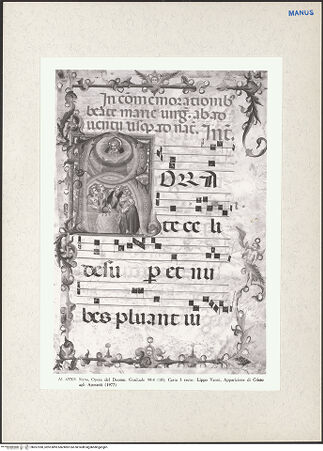 MANUS
In cōmemorationib
beate marie virg. ab ad
uentu usq; ad nat. Int.
ORRA
te ce li
desu p et nu
bes pluant iu
Siena, Opera del Duomo, Graduale
Carta 1 recto. Lippo Vanni, Apparizione di Cristo
agli Apostoli (1977)